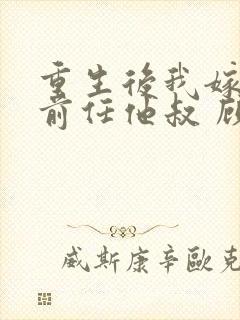 重生後我嫁
前任他叔 顾
威斯康辛歐克